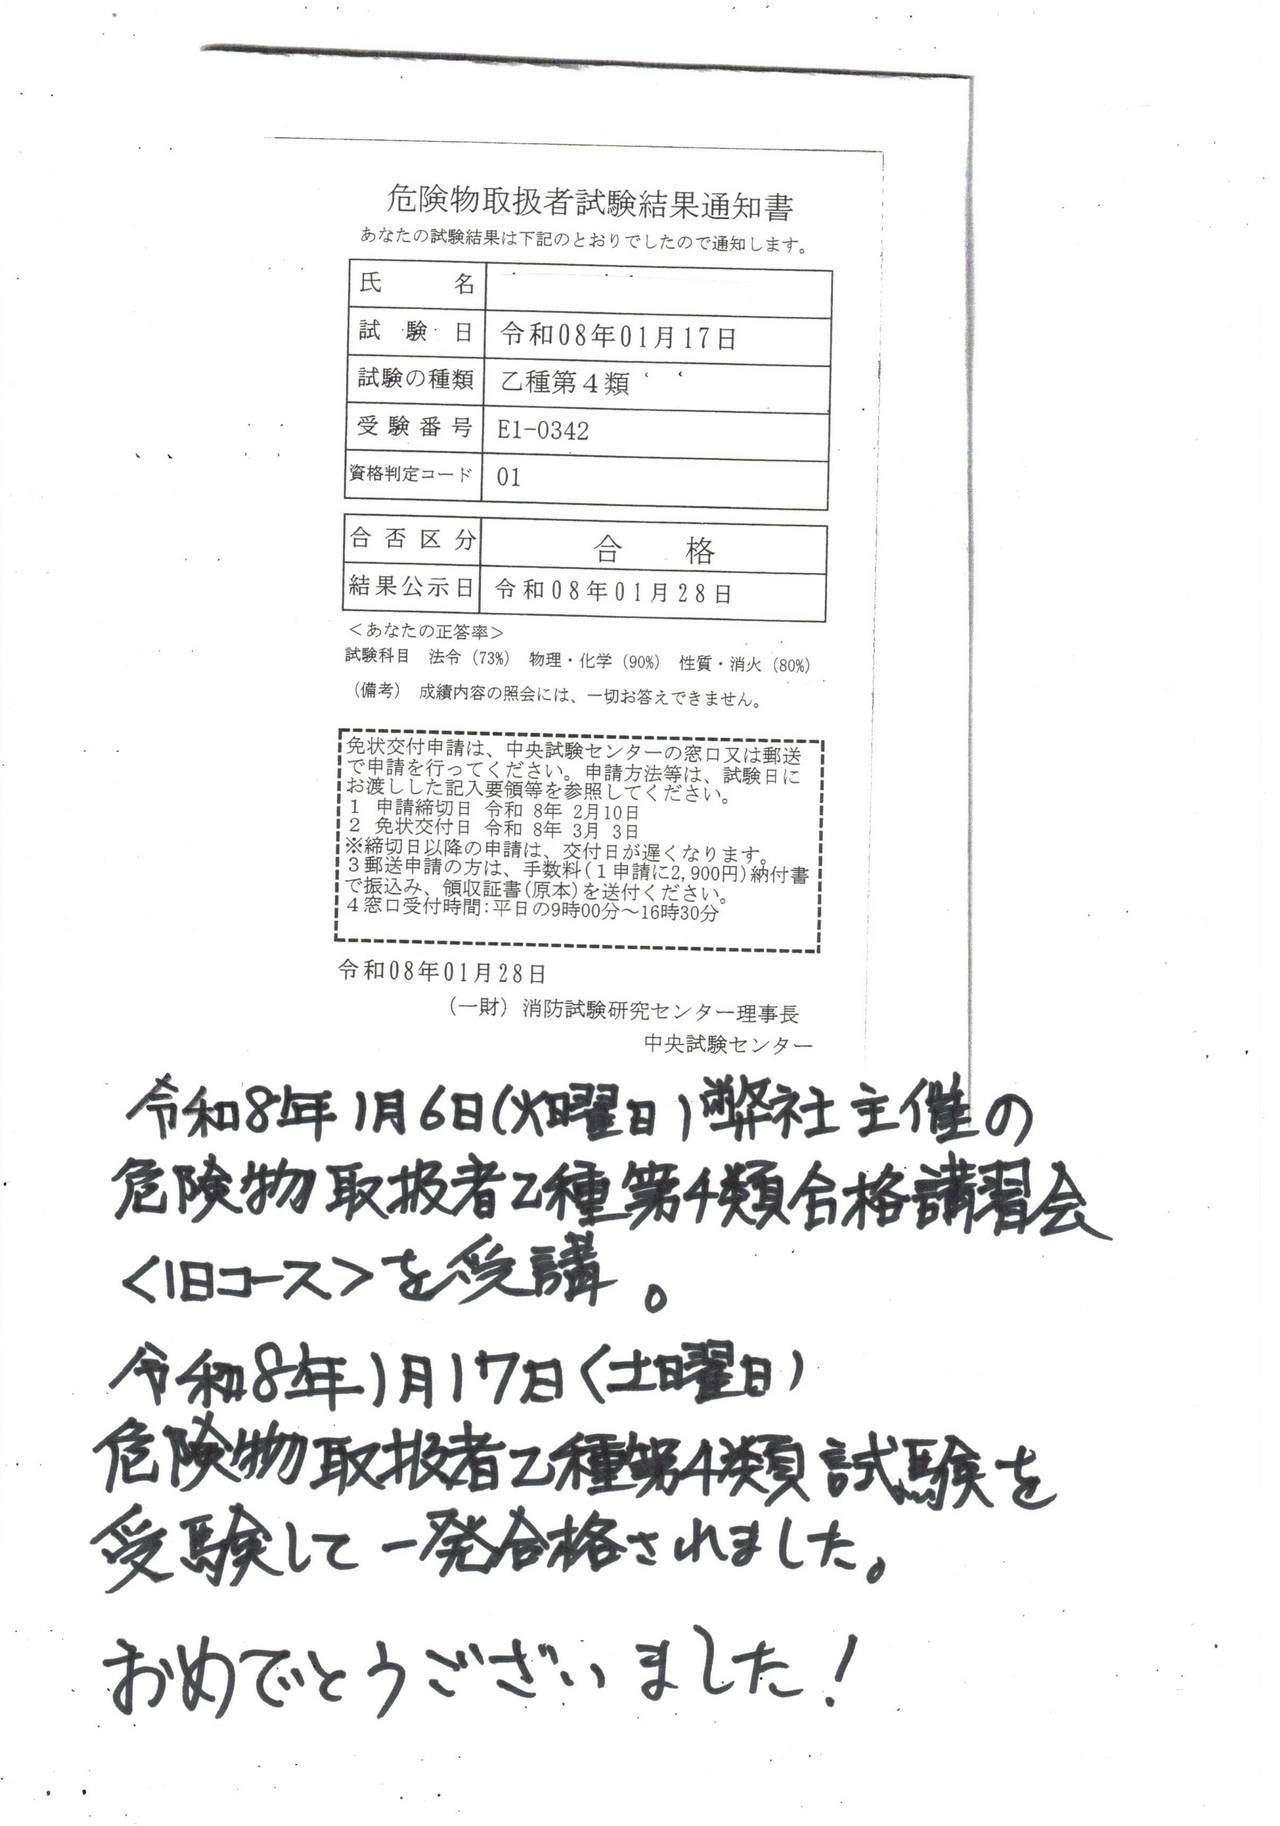 危険物取扱者試験結果通知書
あなたの試験結果は下記のとおりでしたので通知します。
氏名
試験日 令和08年01月17日
試験の種類 乙種第4類
受験番号 E1-0342
資格判定コード 01
合否区分 合格
結果公示日 令和08年01月28日
＜あなたの正答率＞
試験科目 法令（73%） 物理・化学（90%） 性質・消火（80%）
（備考） 成績内容の照会には、一切お答えできません。
免状交付申請は、中央試験センターの窓口又は郵送
で申請を行ってください。申請方法等は、試験日に
お渡しした記入要領等を参照してください。
1 申請締切日 令和 8年 2月10日
2 免状交付日 令和 8年 3月 3日
※締切日以降の申請は、交付日が遅くなります。
3郵送申請の方は、手数料(1申請に2,900円)納付書
で振込み、領収証書(原本)を送付ください。
4窓口受付時間:平日の9時00分～16時30分
令和08年01月28日
（一財）消防試験研究センター理事長
中央試験センター
令和8年1月6日(火曜日)弊社主催の
危険物取扱者乙種第4類合格講習会
<1日コース>を受講。
令和8年1月17日(土曜日)
危険物取扱者乙種第4類試験を
受験して一発合格されました。
おめでとうございました!